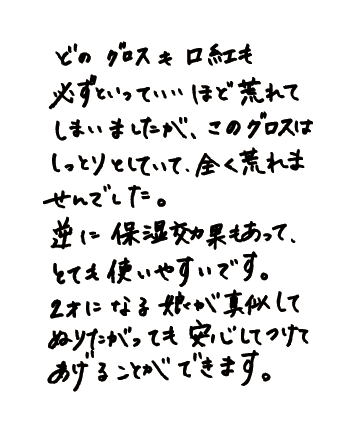 どの グロスも 口紅も
必ずといっていい ほど 荒れて
しまいましたが、このグロスは
しっとりとしていて、全く荒れま
せんでした。
逆に 保湿効果もあって、
とても 使いやすいです。
2才に なる 娘が 真似して
ぬりたがっても 安心してつけて
あげることができます。